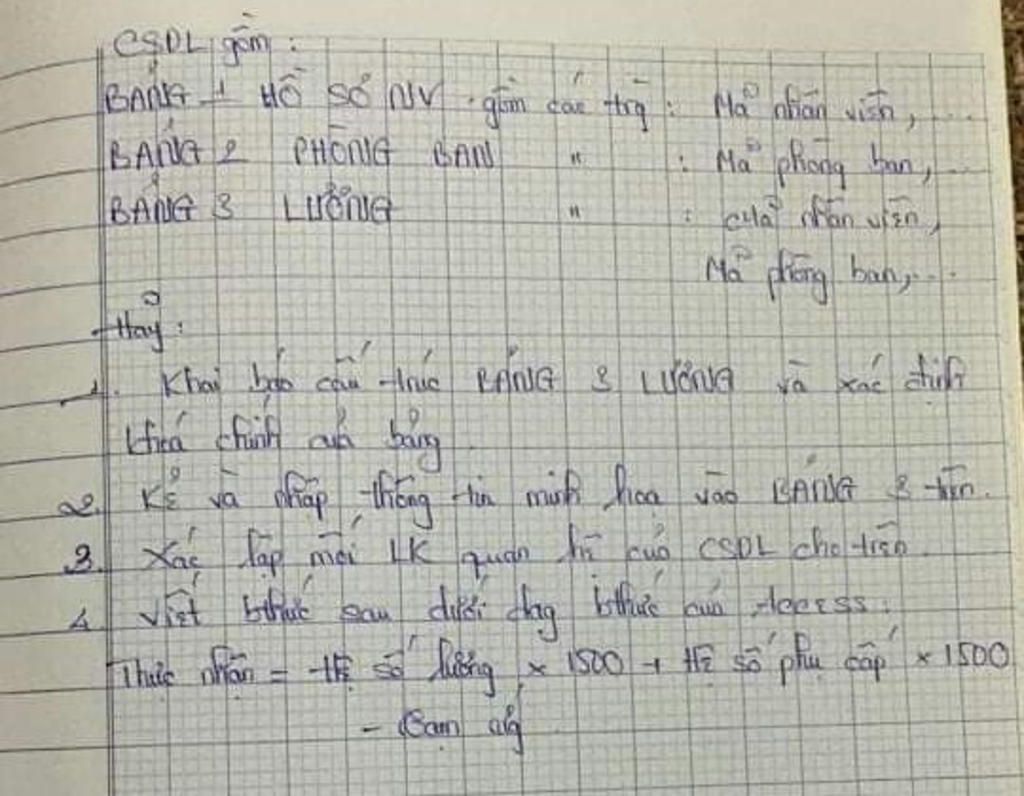 CSDL gồm :
BẢNG 1 HỒ SƠ NV gồm các trg : Mã nhân viên, ...
BẢNG 2 PHÒNG BAN " : Mã phòng ban, ...
BẢNG 3 LƯƠNG " : Mã nhân viên,
Mã phòng ban, ...
Hãy :
1. Khai báo cấu trúc BẢNG 3 LƯƠNG và xác định
khoá chính của bảng
2. Kẻ và nhập thông tin minh hoạ vào BẢNG 3 trên.
3. Xác lập mối LK quan hệ của CSDL cho trên
4 Viết bthức sau dưới dạng bthức của Access :
Thực nhận = Hệ số lương × 1500 + Hệ số phụ cấp × 1500
- Tạm ứng